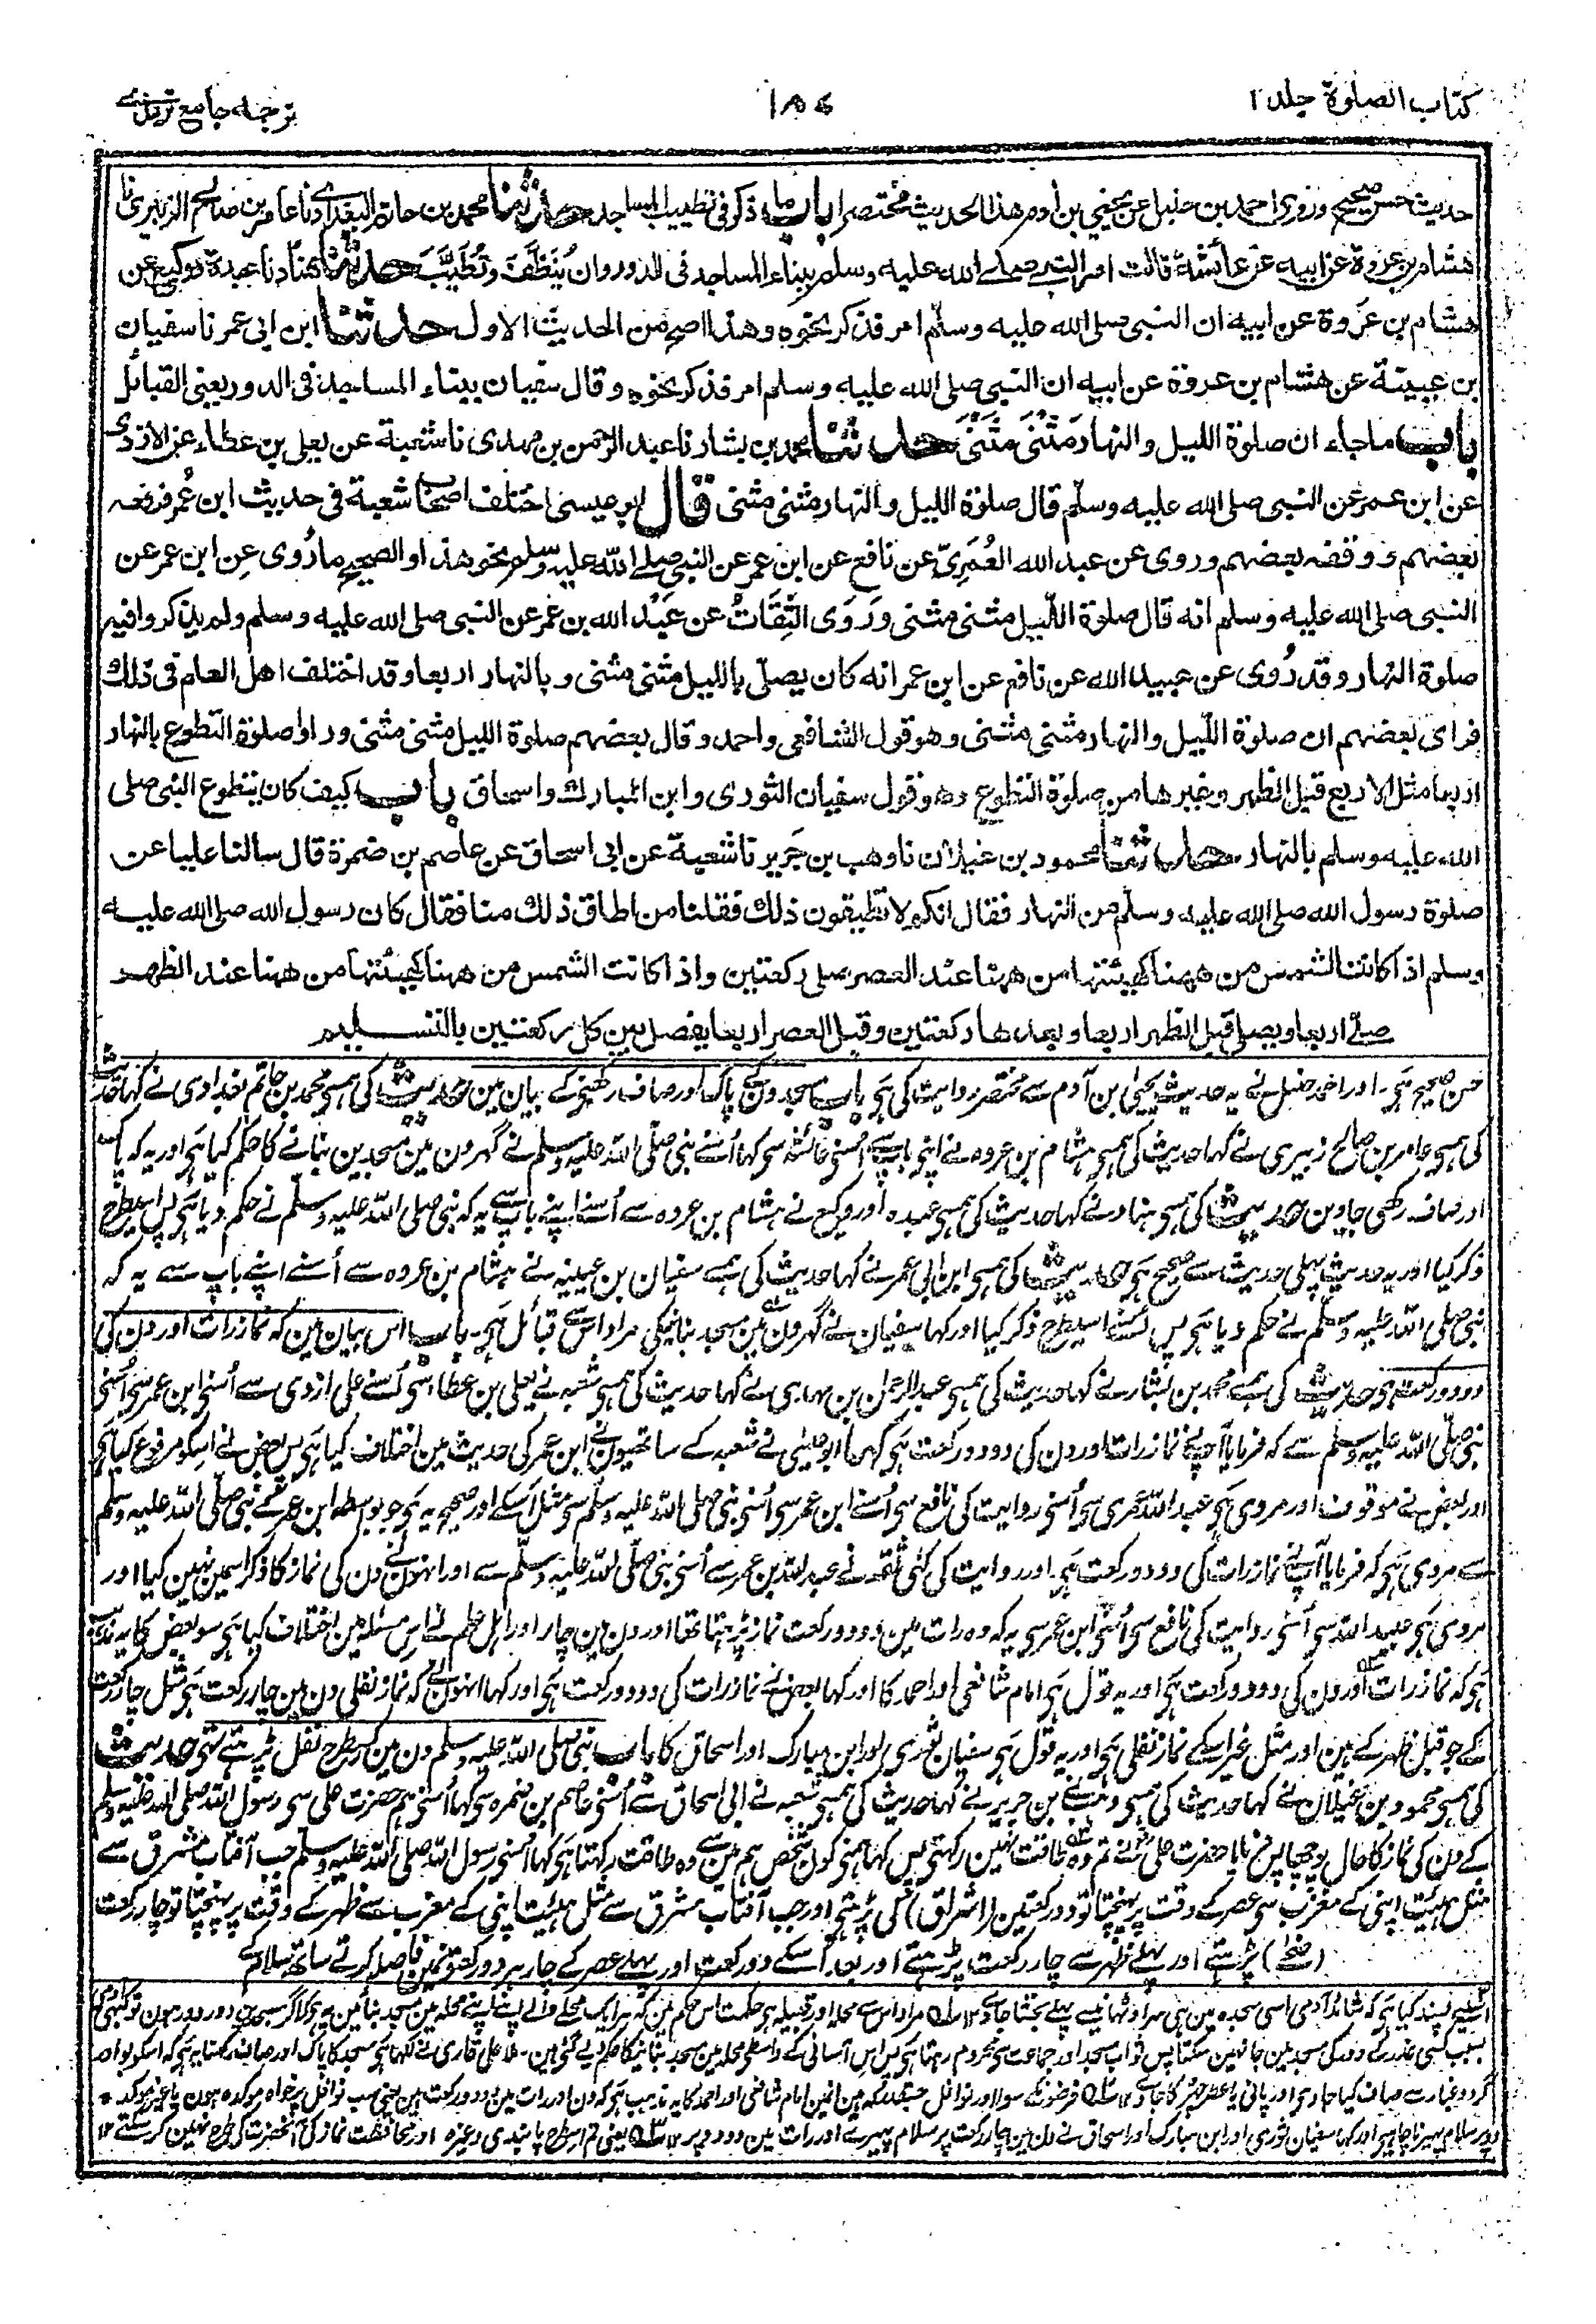 كتاب الصلوة جلد ا
١٨٦
ترجمه جامع ترمذی
حديث حسن صحيح وروى احمد بن حنبل عن يحيى بن آدم هذا الحديث مختصرا باب ما ذكر فى تطييب المساجد حدثنا محمد بن حاتم البغدادى نا عامر بن صالح الزبيرى نا
هشام بن عروة عن ابيه عن عائشة قالت امر النبى صلى الله عليه وسلم ببناء المساجد فى الدور وان يُنَظَّفَ وتُطَيَّبَ حدثنا هناد نا عبدة ووكيع عن
هشام بن عروة عن ابيه ان النبى صلى الله عليه وسلم امر فذكر نحوه وهذا اصح من الحديث الاول حدثنا ابن ابى عمر نا سفيان
بن عيينة عن هشام بن عروة عن ابيه ان النبى صلى الله عليه وسلم امر فذكر نحوه وقال سفيان ببناء المساجد فى الدور يعنى القبائل
باب ماجاء ان صلوة الليل والنهار مَثْنى مَثْنى حدثنا محمد بن بشار نا عبد الرحمن بن مهدى نا شعبة عن يعلى بن عطاء عن الازدى
عن ابن عمر عن النبى صلى الله عليه وسلم قال صلوة الليل والنهار مثنى مثنى قال ابو عيسى اختلف اصحاب شعبة فى حديث ابن عُمر فرفعه
بعضهم ووقفه بعضهم وروى عن عبد الله العُمَرِىّ عن نافع عن ابن عمر عن النبى صلى الله عليه وسلم نحو هذا والصحيح ما رُوى عن ابن عمر عن
النبى صلى الله عليه وسلم انه قال صلوة الليل مثنى مثنى وَرَوَى الثِّقَاتُ عن عَبْد الله بن عمر عن النبى صلى الله عليه وسلم ولم يذكروا فيه
صلوة النهار وقد رُوى عن عبيد الله عن نافع عن ابن عمر انه كان يصلى بالليل مثنى مثنى وبالنهار اربعا وقد اختلف اهل العلم فى ذلك
فراى بعضهم ان صلوة الليل والنهار مثنى مثنى وهو قول الشافعى واحمد وقال بعضهم صلوة الليل مثنى مثنى وراوا صلوة التطوع بالنهار
اربعا مثل الاربع قبل الظهر وغيرها من صلوة التطوع وهو قول سفيان الثورى وابن المبارك واسحاق باب كيف كان يتطوع النبى صلى
الله عليه وسلم بالنهار حدثنا محمود بن غيلان نا وهب بن جرير نا شعبة عن ابى اسحاق عن عاصم بن ضمرة قال سالنا عليا عن
صلوة رسول الله صلى الله عليه وسلم من النهار فقال انكم لا تطيقون ذلك فقلنا من اطاق ذلك منا فقال كان رسول الله صلى الله عليه
وسلم اذا كانت الشمس من ههنا كهيئتها من ههنا عند العصر صلى ركعتين واذا كانت الشمس من ههنا كهيئتها من ههنا عند الظهر
صلى اربعا ويصلى قبل الظهر اربعا وبعدها ركعتين وقبل العصر اربعا يفصل بين كل ركعتين بالتسليم
حسن صحیح ہی۔ اور احمد حنبل نے یہ حدیث یحییٰ بن آدم سے مختصر روایت کی ہی باب مسجدونکے پاک اور صاف رکھنے کے بیان مین حدیث کی ہمسے محمد بن حاتم بغدادی نے کہا حدیث
کی ہمسے عامر بن صالح زبیری نے کہا حدیث کی ہمسے ہشام بن عروہ نے اپنی باپ سے اُسنے عائشہ سے کہا اُسنے نبی صلی اللہ علیہ وسلم نے گھرون مین مسجدین بنانے کا حکم کیا ہی اور یہ کہ پاک
اور صاف رکھی جاوین حدیث کی ہمسے ہناد نے کہا حدیث کی ہمسے عبدہ اور وکیع نے ہشام بن عروہ سے اُسنے اپنے باپ سے یہ کہ نبی صلی اللہ علیہ وسلم نے حکم دیا ہی پس اسیطرح
ذکر کیا اور یہ حدیث پہلی حدیث سے صحیح ہی حدیث کی ہمسے ابن ابی عمر نے کہا حدیث کی ہمسے سفیان بن عیینہ نے ہشام بن عروہ سے اُسنے اپنے باپ سے یہ کہ
نبی صلی اللہ علیہ وسلم نے حکم دیا ہی پس اسیطرح ذکر کیا اور کہا سفیان نے گھرون مین مسجد بنانیکی مراد اس سے قبائل ہی۔ باب اس بیان مین کہ نماز رات اور دن کی
دو دو رکعت ہی حدیث کی ہمسے محمد بن بشار نے کہا حدیث کی ہمسے عبد الرحمن بن مہدی نے کہا حدیث کی ہمسے شعبہ نے یعلی بن عطا سے اُسنے علی ازدی سے اُسنے ابن عمر سے اُسنے
نبی صلی اللہ علیہ وسلم سے کہ فرمایا آپنے نماز رات اور دن کی دو دو رکعت ہی کہا ابو عیسیٰ نے شعبہ کے ساتھیون نے ابن عمر کی حدیث مین اختلاف کیا ہی پس بعض نے اسکو مرفوع کیا ہی
اور بعض نے موقوف اور مروی ہی عبد اللہ عمری سے اُسنے روایت کی نافع سے اُسنے ابن عمر سے اُسنے نبی صلی اللہ علیہ وسلم سے مثل اُسکے اور صحیح یہ ہی جو بواسطہ ابن عمر کے نبی صلی اللہ علیہ وسلم
سے مروی ہی کہ فرمایا آپنے نماز رات کی دو دو رکعت ہی اور روایت کی کئی ثقہ نے عبد اللہ بن عمر سے اُسنے نبی صلی اللہ علیہ وسلم سے اور انہون نے دن کی نماز کا ذکر اسمین نہین کیا اور
مروی ہی عبید اللہ سے اُسنے روایت کی نافع سے اُسنے ابن عمر سے یہ کہ وہ رات مین دو دو رکعت نماز پڑہتا تھا اور دن مین چار اور اہل علم نے اس مسئلہ مین اختلاف کیا ہی سو بعض کا یہ مذہب
ہی کہ نماز رات اور دن کی دو دو رکعت ہی اور یہ قول ہی امام شافعی اور احمد کا اور کہا بعض نے نماز رات کی دو دو رکعت ہی اور کہا انہون نے کہ نماز نفلی دن مین چار رکعت ہی مثل چار رکعت
کے جو قبل ظہر کے ہین اور مثل غیر اسکے نماز نفلی ہی اور یہ قول ہی سفیان ثوری اور ابن مبارک اور اسحاق کا باب نبی صلی اللہ علیہ وسلم دن مین کسطرح نفل پڑہتے تہی حدیث
کی ہمسے محمود بن غیلان نے کہا حدیث کی ہمسے وہب بن جریر نے کہا حدیث کی ہمسے شعبہ نے ابی اسحاق سے اُسنے عاصم بن ضمرہ سے کہا اُسنے ہم حضرت علی سے رسول اللہ صلی اللہ علیہ وسلم
کے دن کی نماز کا حال پوچہا پس فرمایا حضرت علی نے تم وہ طاقت نہین رکہتی پس کہا ہمنے کون شخص ہم مین سے وہ طاقت رکہتا ہی کہا اُسنے رسول اللہ صلی اللہ علیہ وسلم جب آفتاب مشرق سے
مثل ہیئت اپنی کے مغرب سے عصر کے وقت پر پہنچتا تو دو رکعتین (اشراق) کی پڑہتی اور جب آفتاب مشرق سے مثل ہیئت اپنی کے مغرب سے ظہر کے وقت پر پہنچتا تو چار رکعت
(ضحٰے) پڑہتے اور پہلے ظہر سے چار رکعت پڑہتے اور بعد اُسکے دو رکعت اور پہلے عصر کے چار ہر دو رکعتونمین فاصلہ کرتے ساتھ سلام کے
پسند کیا ہی کہ شاید آدمی اسی سجدہ مین ہی سر اوٹہانیسے پہلے بخشا جاوے ۱۲ مراد اس سے محلہ اور قبیلہ ہی حکمت اس حکم مین کہ ہر ایک محلے والے اپنے اپنے محلہ مین مسجد بنائین یہ ہی کہ اگر مسجد دور دور ہون تو
بسبب کسی عذر کے دور کی مسجد مین جا نہین سکتا پس ثواب مسجد اور جماعت سے محروم رہتا ہی پس اس آسانی کے واسطے محلہ مین مسجد بنانیکا حکم دیے گئی ہین۔ ملا علی قاری نے لکہا ہی مسجد کا پاک اور صاف رکہنا یہ ہی کہ اسکو بو اور
گرد و غبار سے صاف کیا جاوی اور پانی یا عطر چہڑکا جاوے ۱۲ فرضونکے سوا اور نوافل جسقدر کہ ہین انمین امام شافعی اور احمد کا یہ مذہب ہی کہ دن اور رات مین دو دو رکعت ہین یعنی سب نوافل پر خواہ موکدہ ہون یا غیر موکدہ
دو پر سلام پہیرنا چاہیے اور کہا سفیان ثوری اور ابن مبارک اور اسحاق نے دن مین چار رکعت پر سلام پہیرے اور رات مین دو دو پر ۱۲ یعنی تم اسطرح پابندی وغیرہ اور محافظت نماز کی آنحضرت کی طرح نہین کر سکتے ۱۲